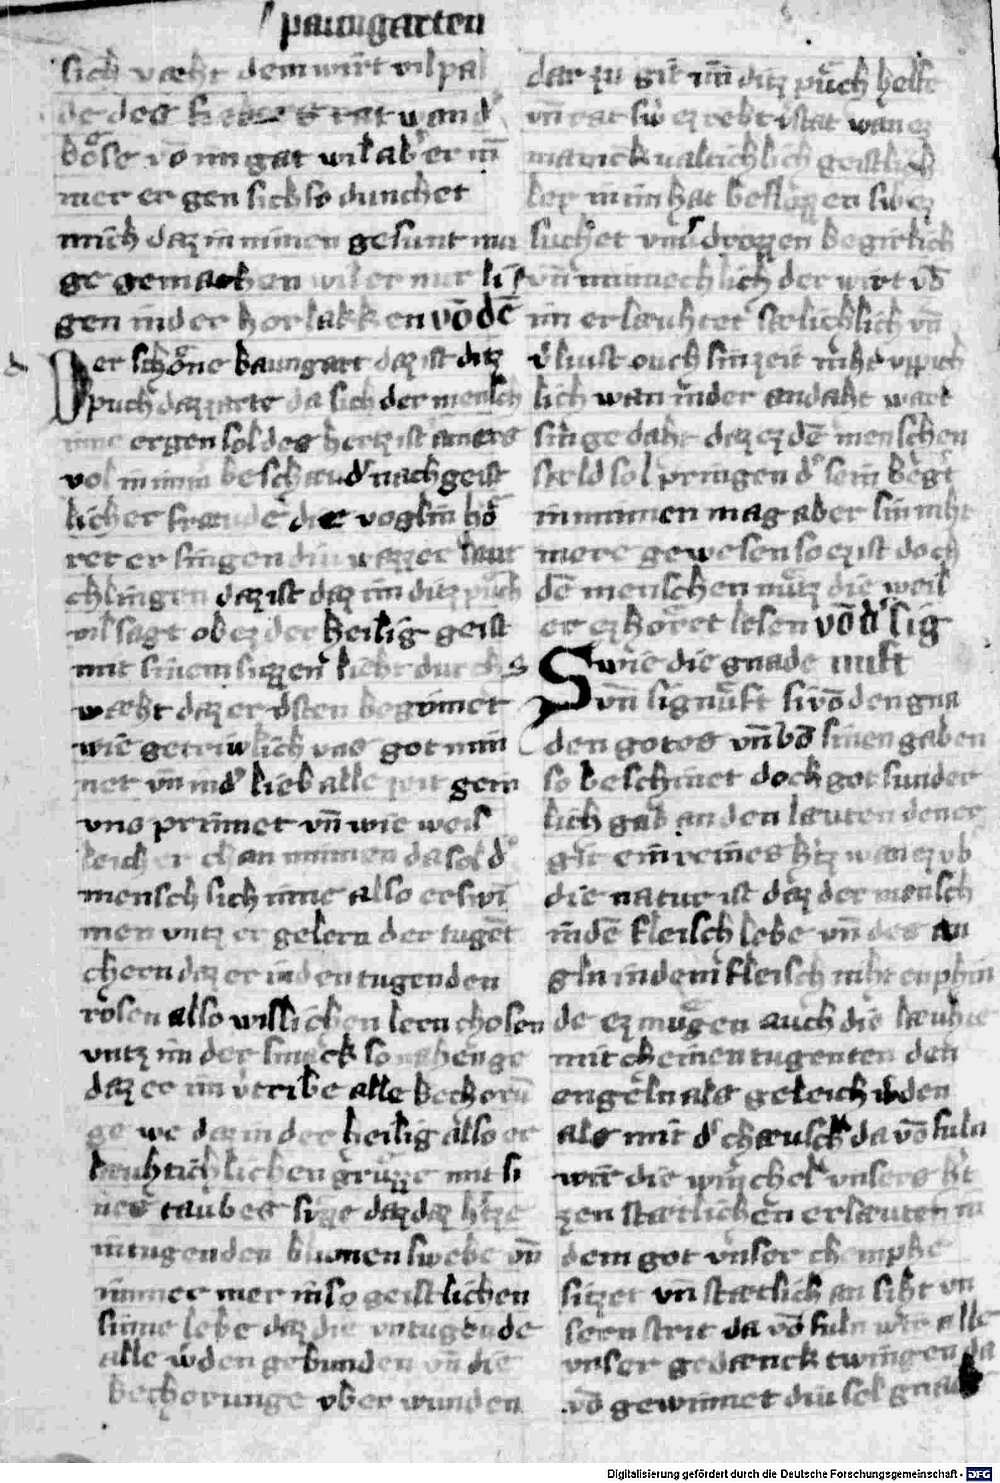 paumgarten
sich væht dem wirt vil pal
de des rat wand
böse vō im gat wil ab er im
mer er gen sich so dunchet
mich daz in minen gesunt mu
ge gemachen wil er nur li
gen in der hor lakken võ dē
Der schöne baumgart daz ist ditz
puch daz zarte da sich der mensch
inne ergen sol des hertz ist anders
vol minnen beschaud nach geist
licher fræude die voglin hö
ret er singen diu wazzer laut
chlingen daz ist daz im ditz puch
vil sagt ob ez der heilig geist
mit sinem süzzen lieht durch
wæht daz er vsten beginnet
wie getriwlich vns got min
net vn̄ in d lieb alle zeit gern
vns prinnet vn̄ wie weis
leich er chan minnen da sol d
mensch sich inne also erswi
men vntz er gelern der tugēt
chern daz er in den tugenden
rosen also wislichen lern chosen
vntz im der smack so
daz er im vertribe alle bechorū
ge we daz in der heilig also er
leuhtichlichen grüzze mit si
nes taubes süzze daz daz hrze
in tugenden blumen swebe vn̄
immer mer in so geistlichen
sinne lebe daz die vntugende
alle wden gebunden vn̄ die
bechorunge vber wunden
dar zu git im ditz puch helfe
vn̄ rat sw ez reht stat wan ez
manick geistlich
ler in im hat beslozzen sw ez
suchet vn̄ begirlich
vn̄ minnechlich der wirt vō
im erlæuhtet sælichlich vn̄
vliust ouch sin zeit niht vppich
lich wan in der andaht wart
sin gedaht daz ez dē menschen
sæld sol pringen d sein begt
in minnen mag aber sin niht
mere gewesen so ez ist doch
dē menschen nütz die weil
er ez höret lesen võ d sig
Swie die gnade nust
vn̄ sig si võ den gna
den gotes vn̄ vō sinen gaben
so beschinet doch got sunder
lich gab an den læuten den er
git ein reines htz wan ez vb
die natur ist daz der mensch
in dē fleisch lebe vn̄ des an
gln in dem fleisch niht enphin
de ez mügen auch die læuhte
mit cheinen tugenten den
engeln als geleich wden
als mit d chæusch da võ suln
wir die winchel vnsers ht
zen stætlichen erlæuten in
dem got vnser chemphe
sitzet vn̄ stætlich an siht vn
sern strit da võ suln wir alle
vnser gedænck twingen da
võ gewinnet diu sel gnad